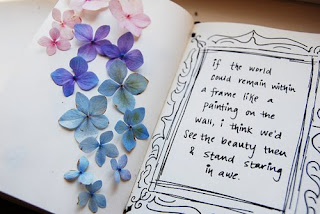 if the world
could remain within
a frame like a
painting on the
wall, i think we'd
see the beauty then
& stand staring
in awe.